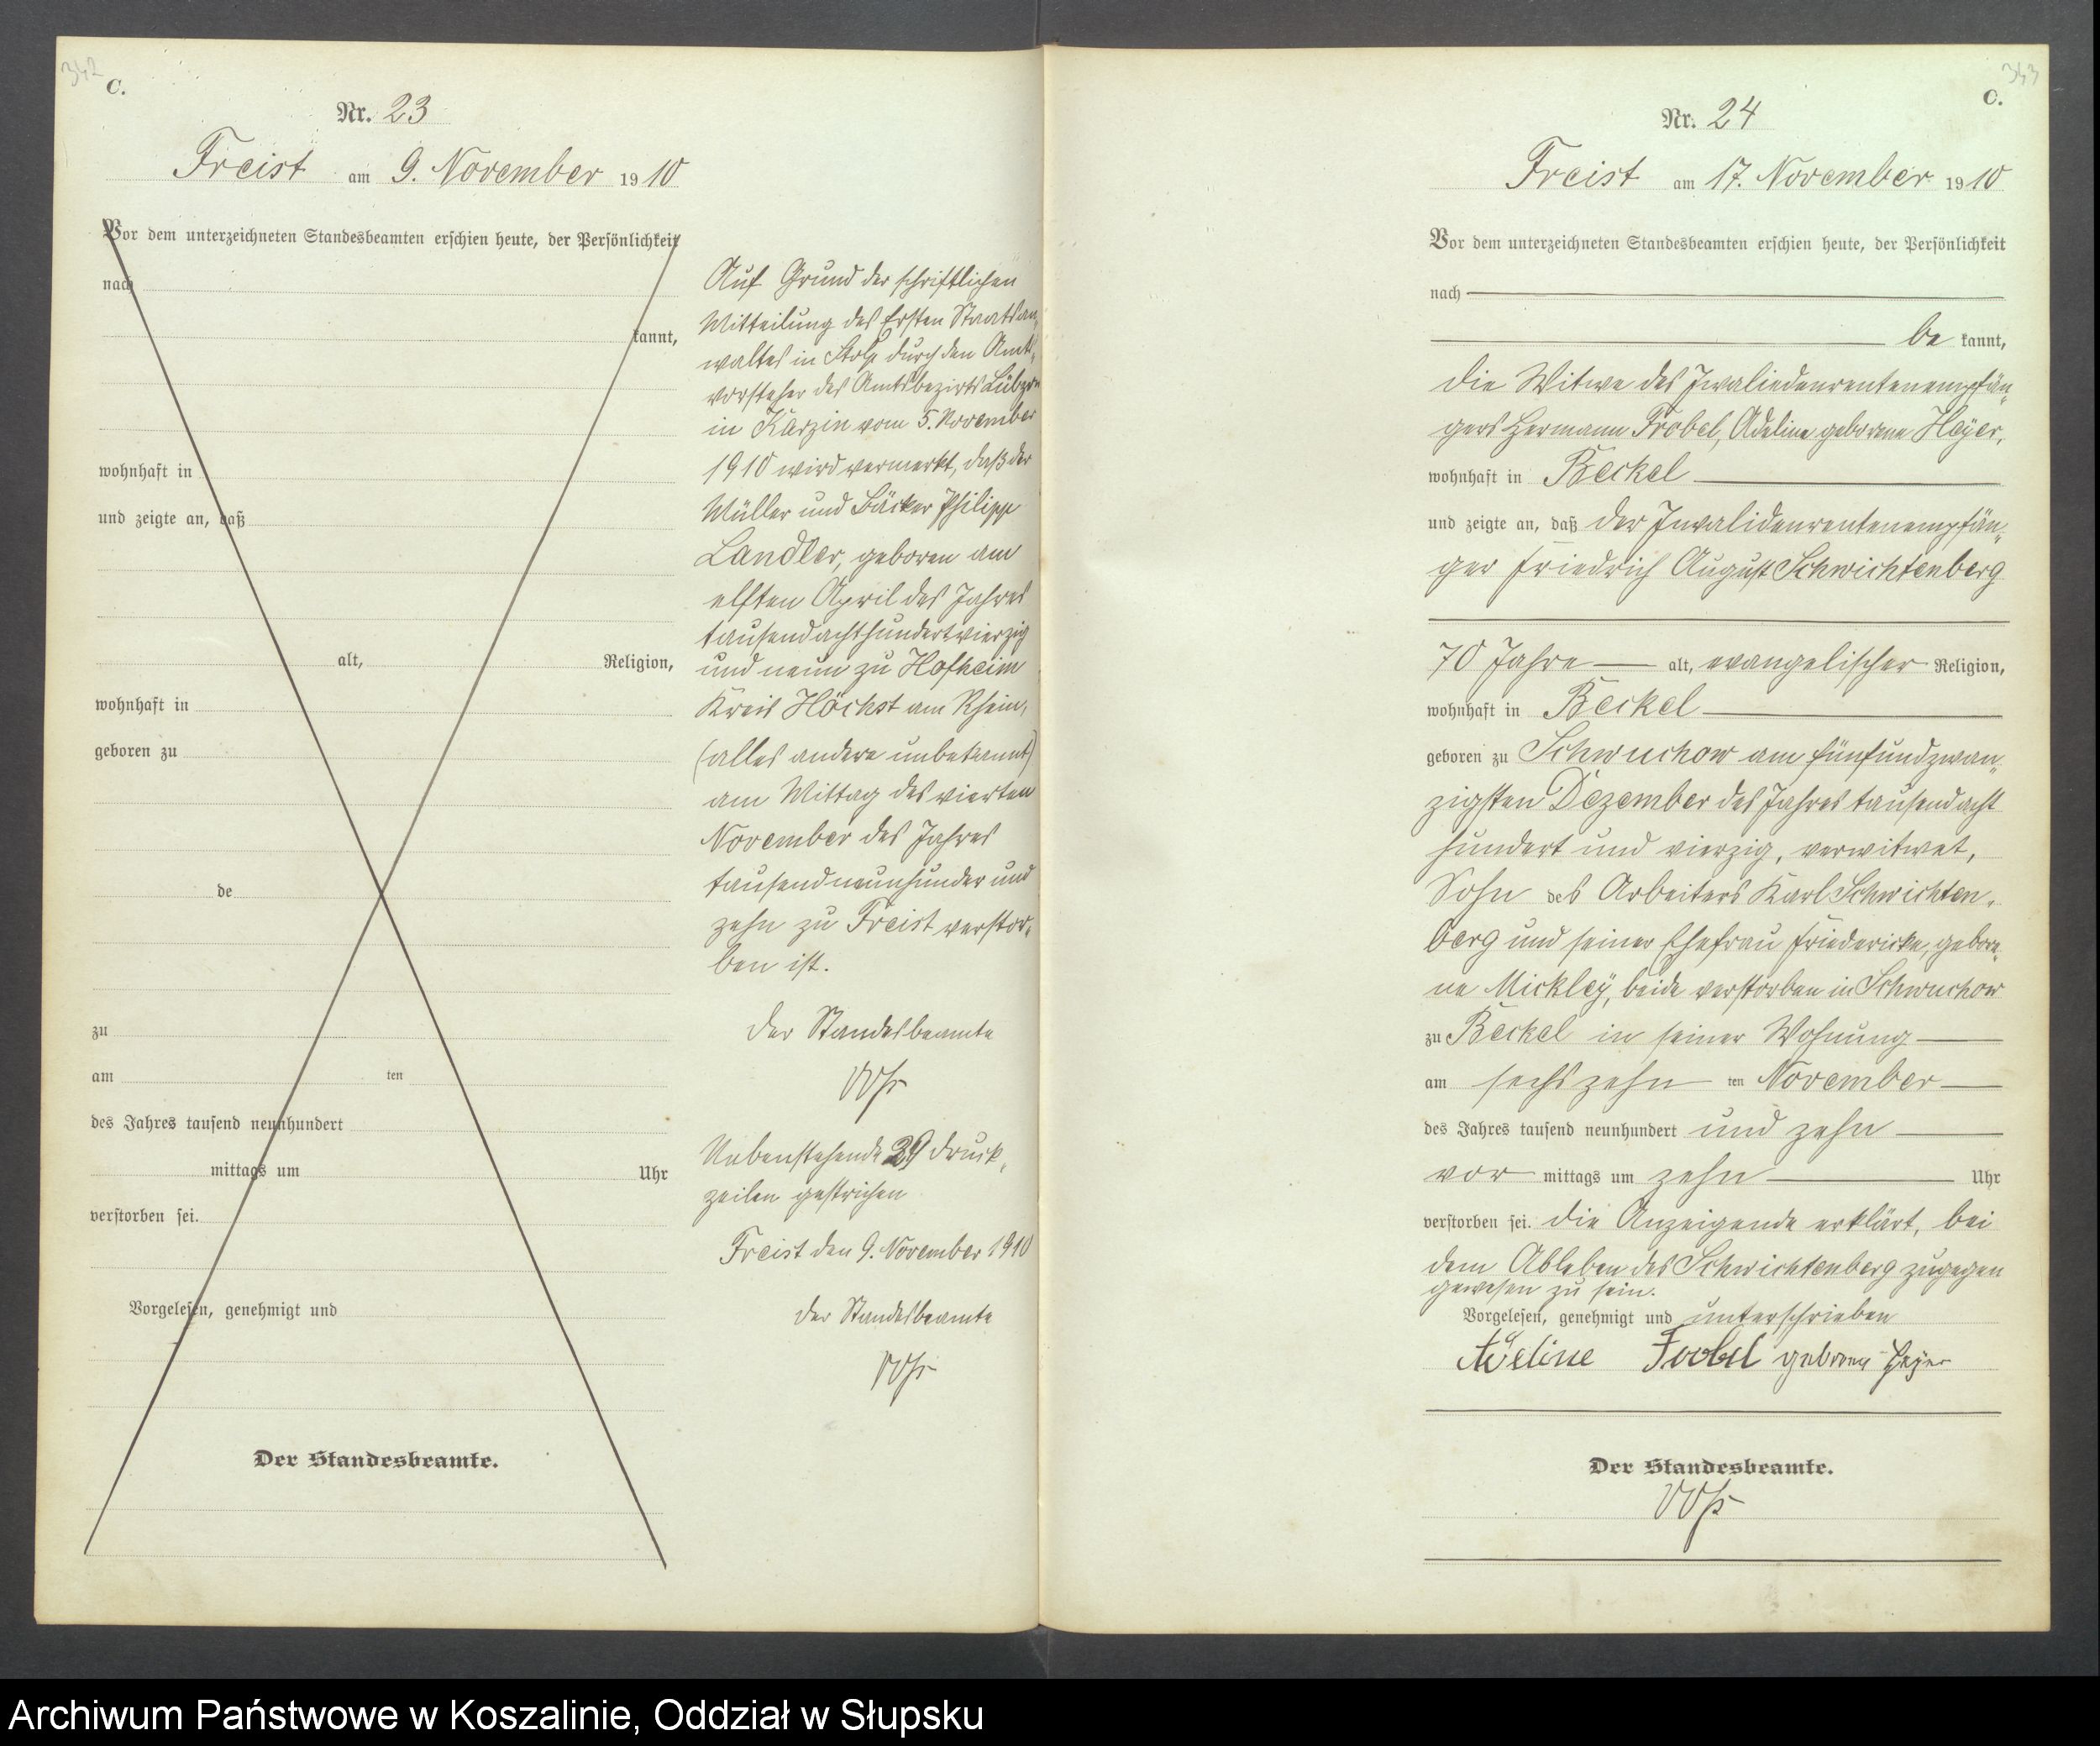 342
C.
Nr. 23
Freist am 9. November 1910
Vor dem unterzeichneten Standesbeamten erschien heute, der Persönlichkeit
nach
kannt,
wohnhaft in
und zeigte an, daß
alt, Religion,
wohnhaft in
geboren zu
de
zu
am ten
des Jahres tausend neunhundert
mittags um Uhr
verstorben sei.
Vorgelesen, genehmigt und
Der Standesbeamte.
Auf Grund der schriftlichen
Mitteilung des Ersten Staatsan-
waltes in Stolp durch den Amts-
vorsteher des Amtsbezirks Lübzow
in Karzin vom 5. November
1910 wird vermerkt, daß der
Müller und Bäcker Philipp
Landler, geboren am
elften April des Jahres
tausendachthundertvierzig
und neun zu Hofheim
Kreis Höchst am Rhein,
(alles andere unbekannt)
am Mittag des vierten
November des Jahres
tausendneunhunder und
zehn zu Freist verstor-
ben ist.
Der Standesbeamte
Nebenstehende 29 Druck-
zeilen gestrichen
Freist den 9. November 1910
Der Standesbeamte
343
C.
Nr. 24
Freist am 17. November 1910
Vor dem unterzeichneten Standesbeamten erschien heute, der Persönlichkeit
nach
be kannt,
die Witwe des Invaliedenrentenempfän-
gers Hermann Frobel, Adeline geborene Heyer,
wohnhaft in Beckel
und zeigte an, daß der Invalidenrentenempfän-
ger Friedrich August Schwichtenberg
70 Jahre alt, evangelischer Religion,
wohnhaft in Beckel
geboren zu Schwuchow am fünfundzwan-
zigsten Dezember des Jahres tausendacht
hundert und vierzig, verwitwet,
Sohn des Arbeiters Karl Schwichten-
berg und seiner Ehefrau Friedericke, gebore-
ne Mickley, beide verstorben in Schwuchow
zu Beckel in seiner Wohnung
am sechszehn ten November
des Jahres tausend neunhundert und zehn
vor mittags um zehn Uhr
verstorben sei. Die Anzeigende erklärt, bei
dem Ableben des Schwichtenberg zugegen
gewesen zu sein.
Vorgelesen, genehmigt und unterschrieben
Adeline Frobel geborene Heyer
Der Standesbeamte.
Archiwum Państwowe w Koszalinie, Oddział w Słupsku